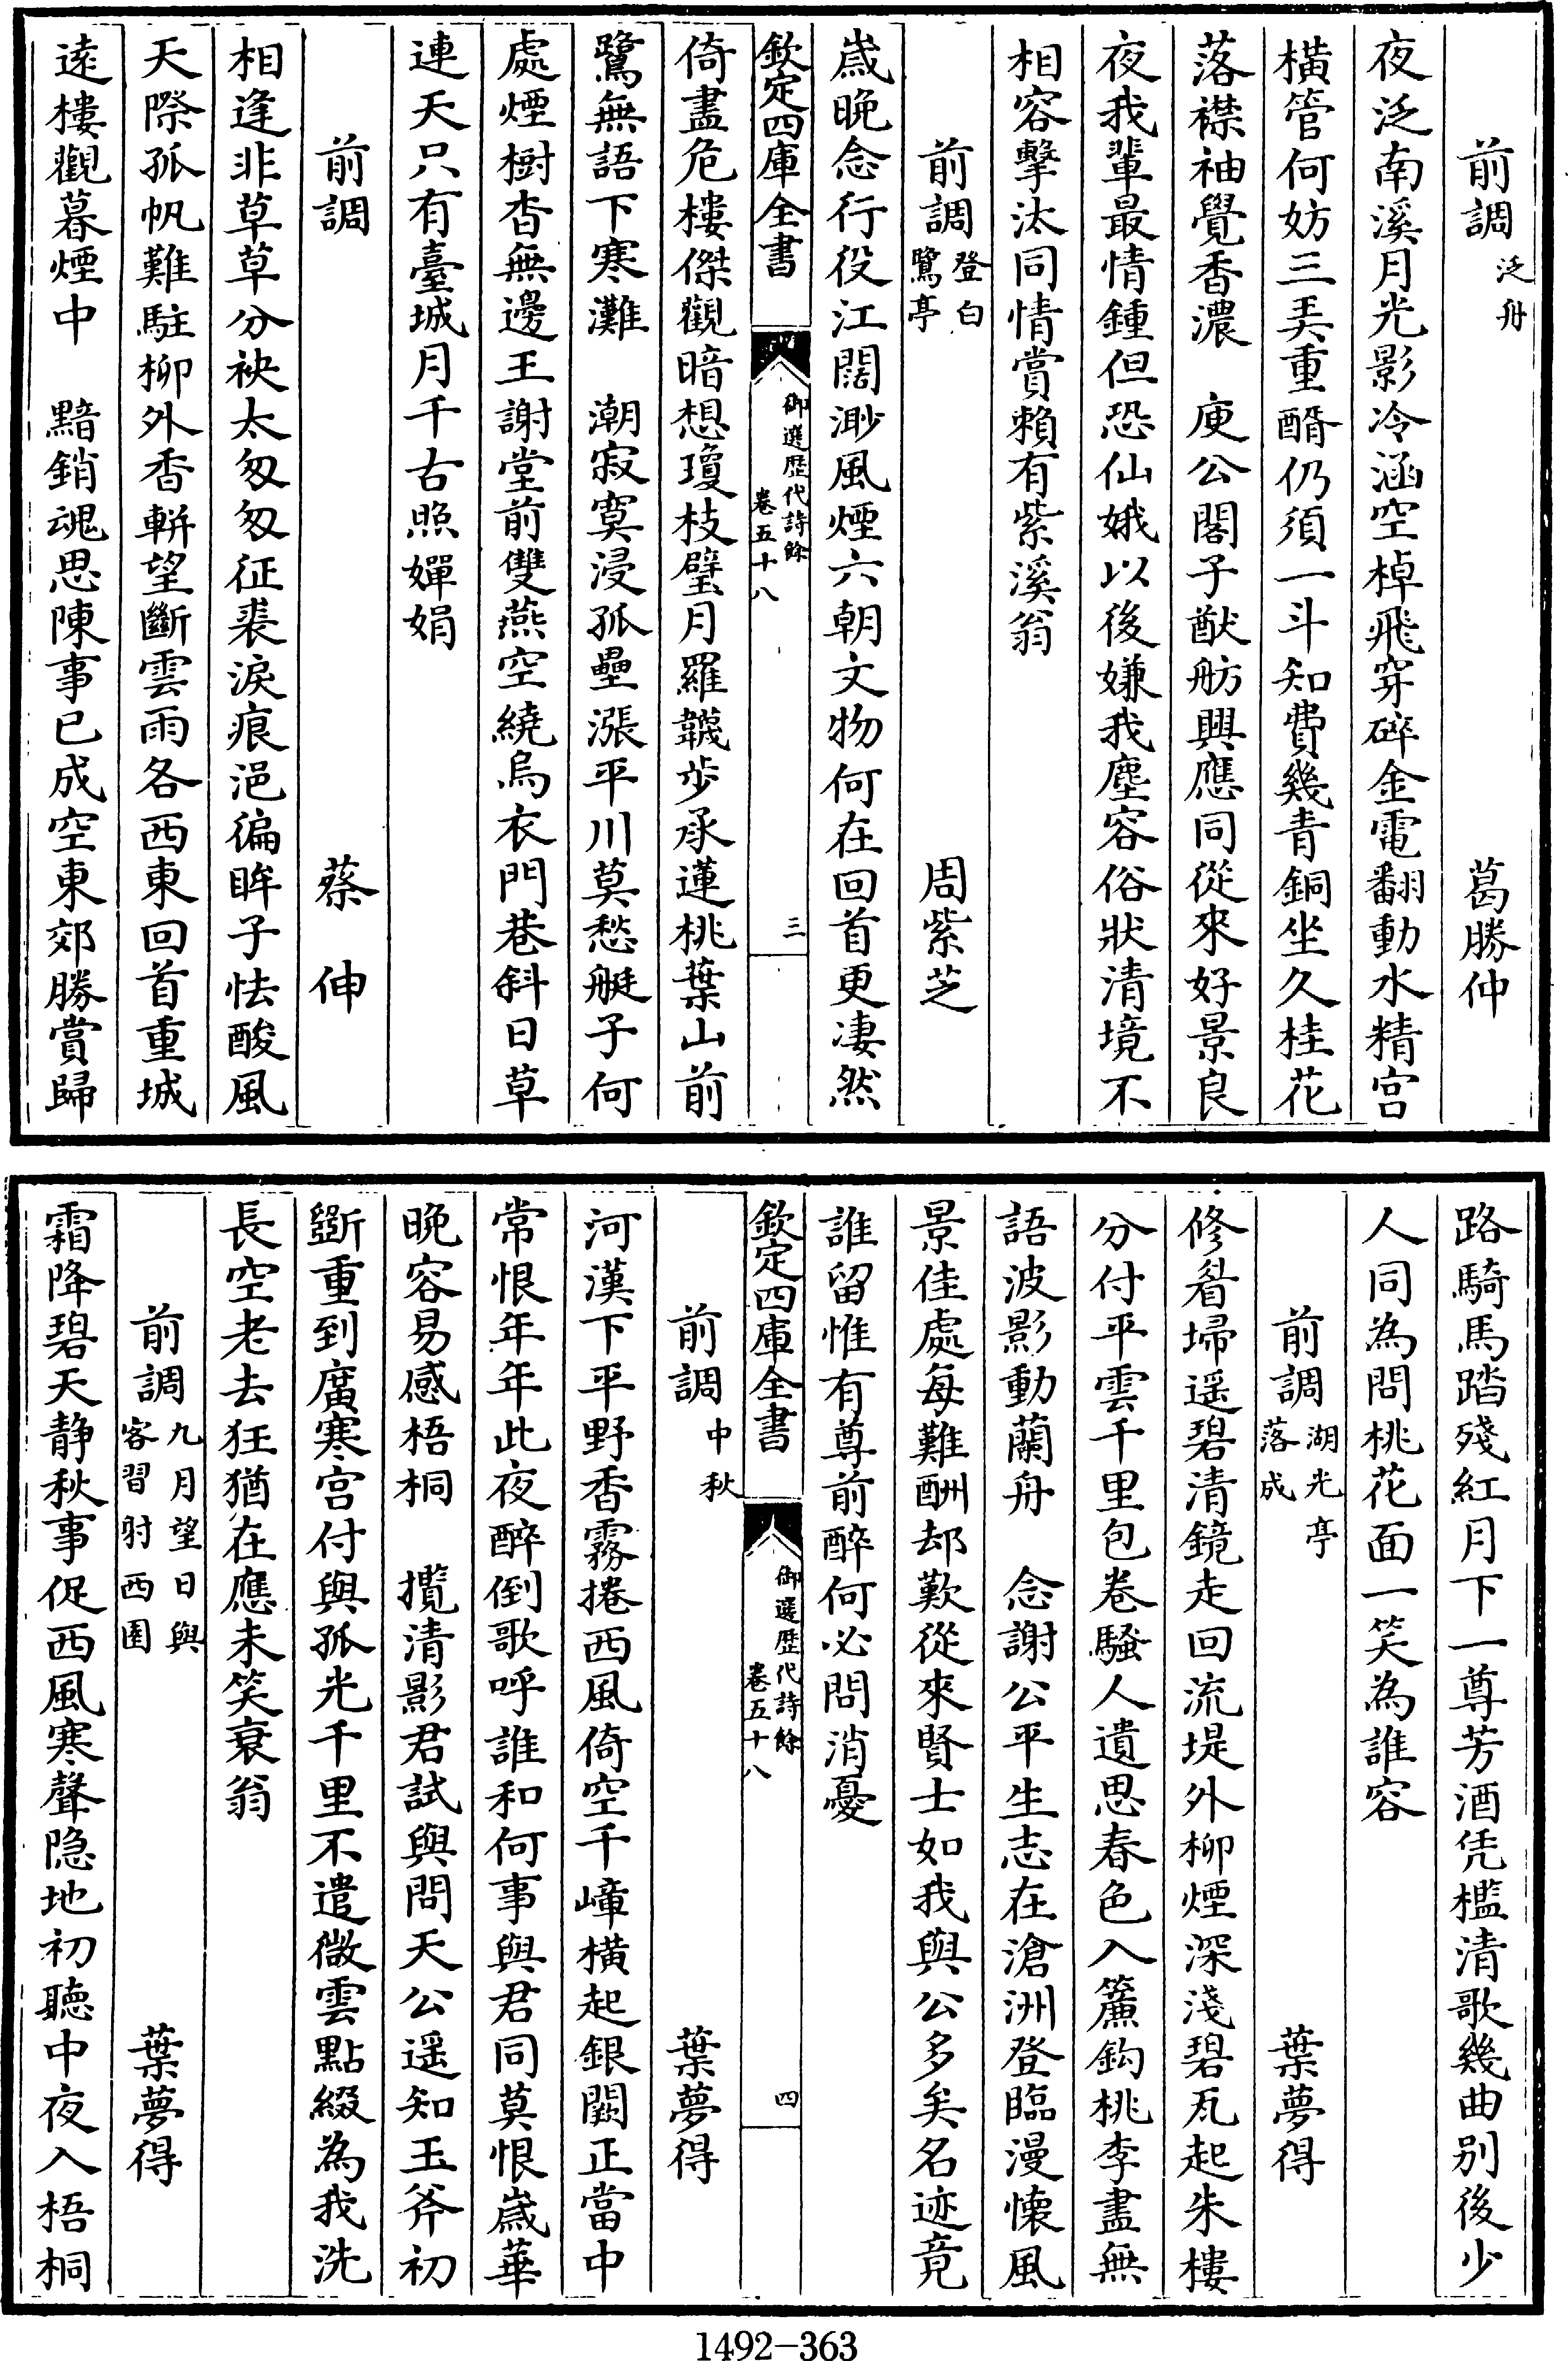 前調 泛舟 葛勝仲
夜泛南溪月光影冷涵空棹飛穿碎金電翻動水精宮
橫管何妨三弄重醑仍須一斗知費幾青銅坐久桂花
落襟袖覺香濃 庾公閣子猷舫興應同從來好景良
夜我輩最情鍾但恐仙娥以後嫌我塵容俗狀清境不
相容擊汰同情賞賴有紫溪翁
前調 登白鷺亭 周紫芝
歲晚念行役江闊渺風煙六朝文物何在回首更凄然
欽定四庫全書 御選歷代詩餘 卷五十八 三
倚盡危樓傑觀暗想瓊枝璧月羅韈步承蓮桃葉山前
鷺無語下寒灘 潮寂寞浸孤壘漲平川莫愁艇子何
處煙樹杳無邊王謝堂前雙燕空繞烏衣門巷斜日草
連天只有臺城月千古照嬋娟
前調 蔡伸
相逢非草草分袂太匆匆征裘淚痕浥徧眸子怯酸風
天際孤帆難駐柳外香軿望斷雲雨各西東回首重城
遠樓觀暮煙中 黯銷魂思陳事已成空東郊勝賞歸
路騎馬踏殘紅月下一尊芳酒凭檻清歌幾曲别後少
人同為問桃花面一笑為誰容
前調 湖光亭落成 葉夢得
修眉埽遥碧清鏡走回流堤外柳煙深淺碧瓦起朱樓
分付平雲千里包卷騷人遺思春色入簾鈎桃李盡無
語波影動蘭舟 念謝公平生志在滄洲登臨漫懷風
景佳處每難酬却歎從來賢士如我與公多矣名迹竟
誰留惟有尊前醉何必問消憂
欽定四庫全書 御選歷代詩餘 卷五十八 四
前調 中秋 葉夢得
河漢下平野香霧捲西風倚空千嶂橫起銀闕正當中
常恨年年此夜醉倒歌呼誰和何事與君同莫恨歲華
晚容易感梧桐 攬清影君試與問天公遥知玉斧初
斵重到廣寒宮付與孤光千里不遣微雲點綴為我洗
長空老去狂猶在應未笑衰翁
前調 九月望日與客習射西園 葉夢得
霜降碧天静秋事促西風寒聲隐地初聽中夜入梧桐
1492-363